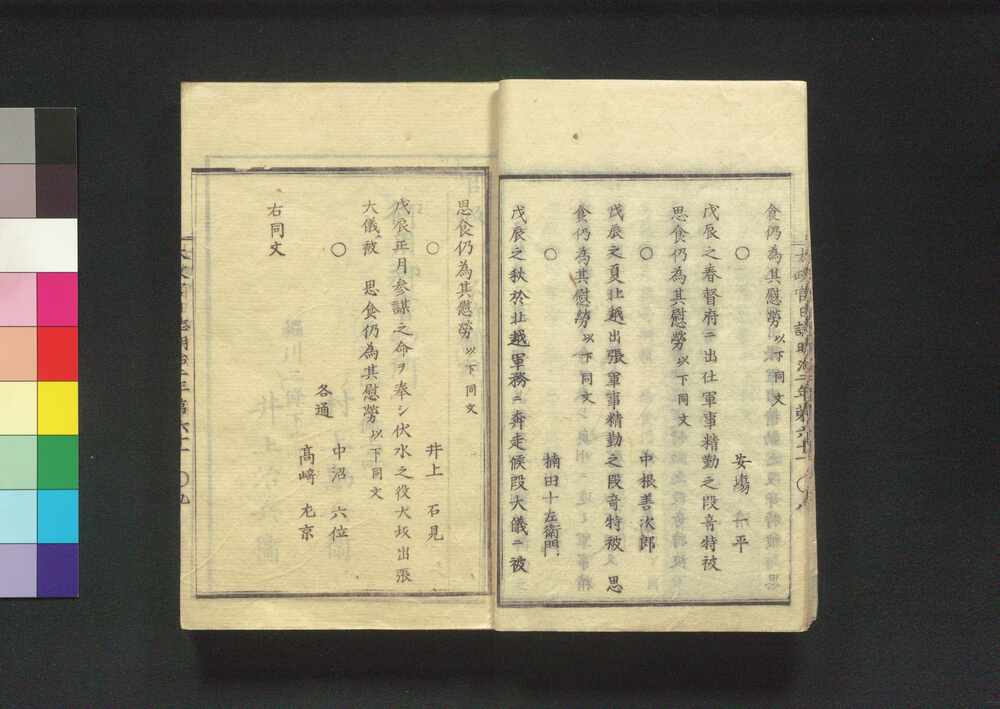 食仍為其慰勞以下同文
○ 安塲 平
戊辰之春督府ニ出仕軍事精勤之段竒特被
思食仍為其慰勞以下同文
○ 中根善次郎
戊辰之夏北越出張軍事精勤之段竒特被 思
食仍為其慰勞以下同文
○ 楠田十左衛門
戊辰之秋於北越軍務ニ奔走候段大儀ニ被
思食仍為其慰勞以下同文
○ 井上 石見
戊辰正月参謀之命ヲ奉シ伏水之役大坂出張
大儀被 思食仍為其慰勞以下同文
○ 各通 中沼 六位
髙﨑 左京
右同文